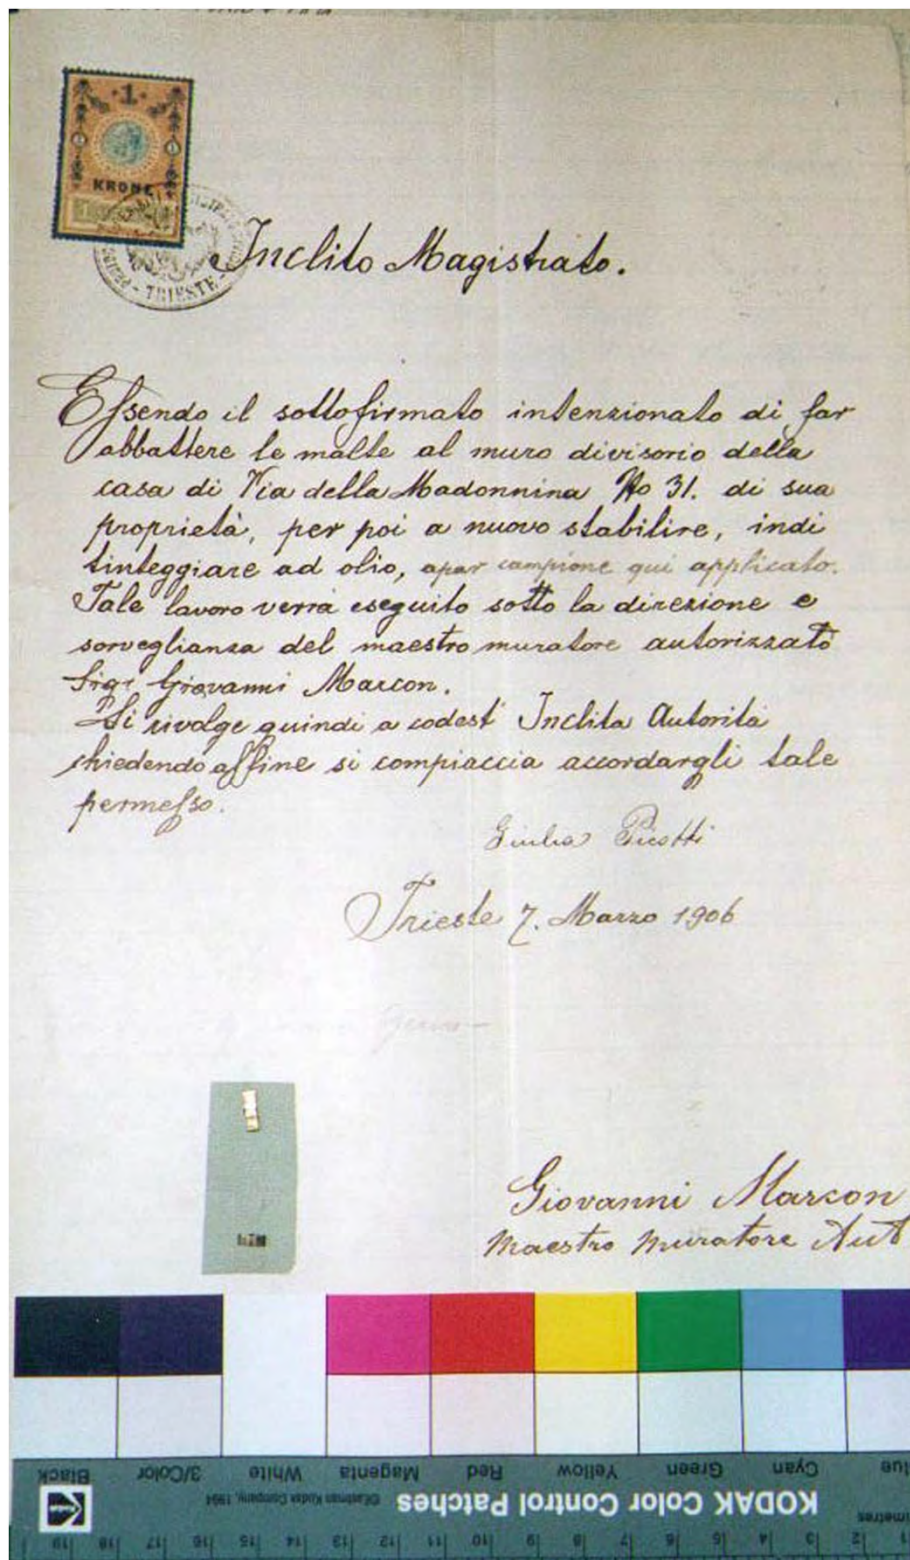 1
KRONE
TRIESTE
Inclito Magistrato.
Essendo il sottofirmato intenzionato di far
abbattere le malte al muro divisorio della
casa di Via della Madonnina No 31. di sua
proprietà, per poi a nuovo stabilire, indi
tinteggiare ad olio, apar campione qui applicato.
Tale lavoro verrà eseguito sotto la direzione e
sorveglianza del maestro muratore autorizzato
Sigr Giovanni Marcon.
Si rivolge quindi a codest' Inclita Autorità
chiedendo affine si compiaccia accordargli tale
permesso.
Giulia Picotti
Trieste 7. Marzo 1906
Giovanni Marcon
Maestro Muratore Aut
Black 3/Color White Magenta Red Yellow Green Cyan
KODAK Color Control Patches
©Eastman Kodak Company, 1994
19 18 17 16 15 14 13 12 11 10 9 8 7 6 5 4 3 2 1